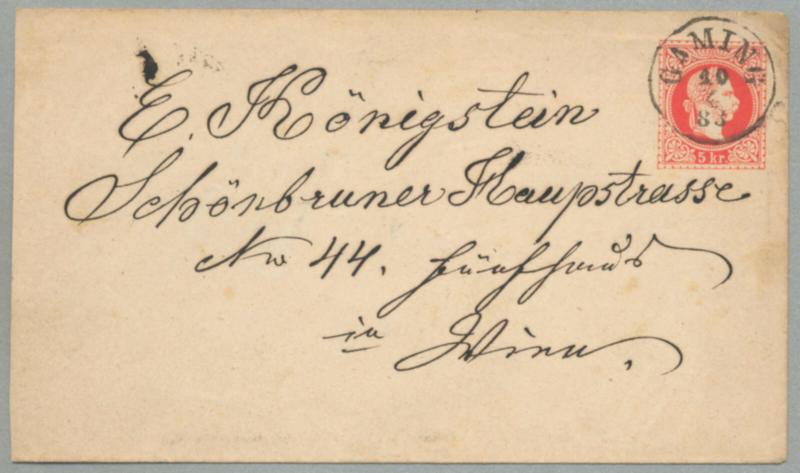 GAMING
83
5 kr.
E. Königstein
Schönbruner Haupstrasse
No 44. Fünfhaus
in Wien.